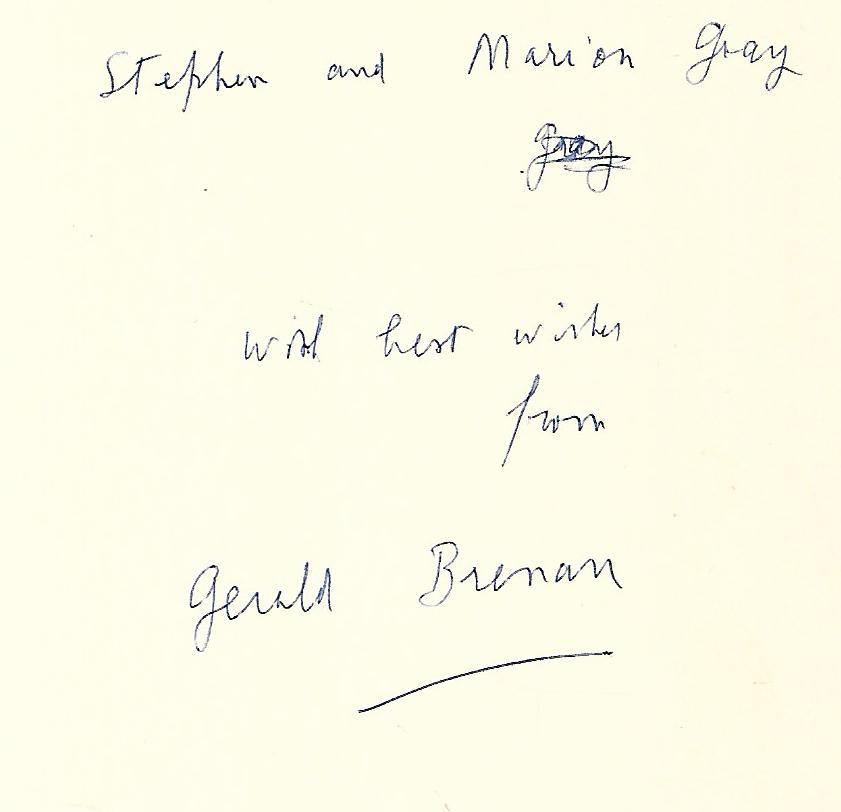 Stephen and Marion Gray
Gray
with best wishes
from
Gerald Brenan